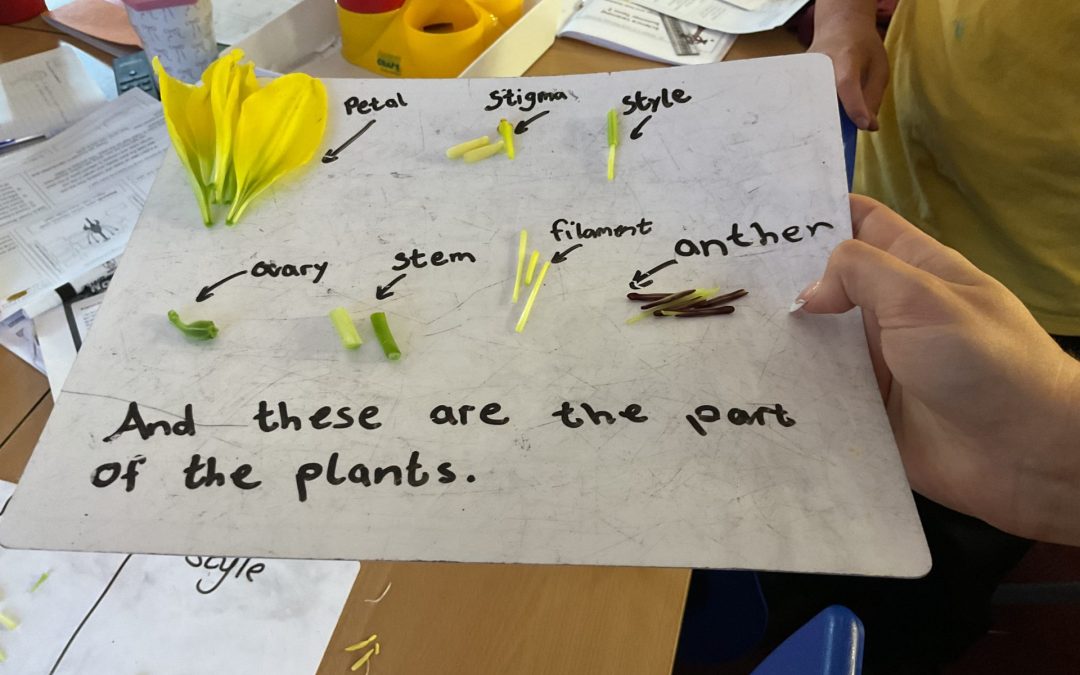 Petal
Stigma
style
ovary
stem
filament
anther
And these are the part
of the plants.
style